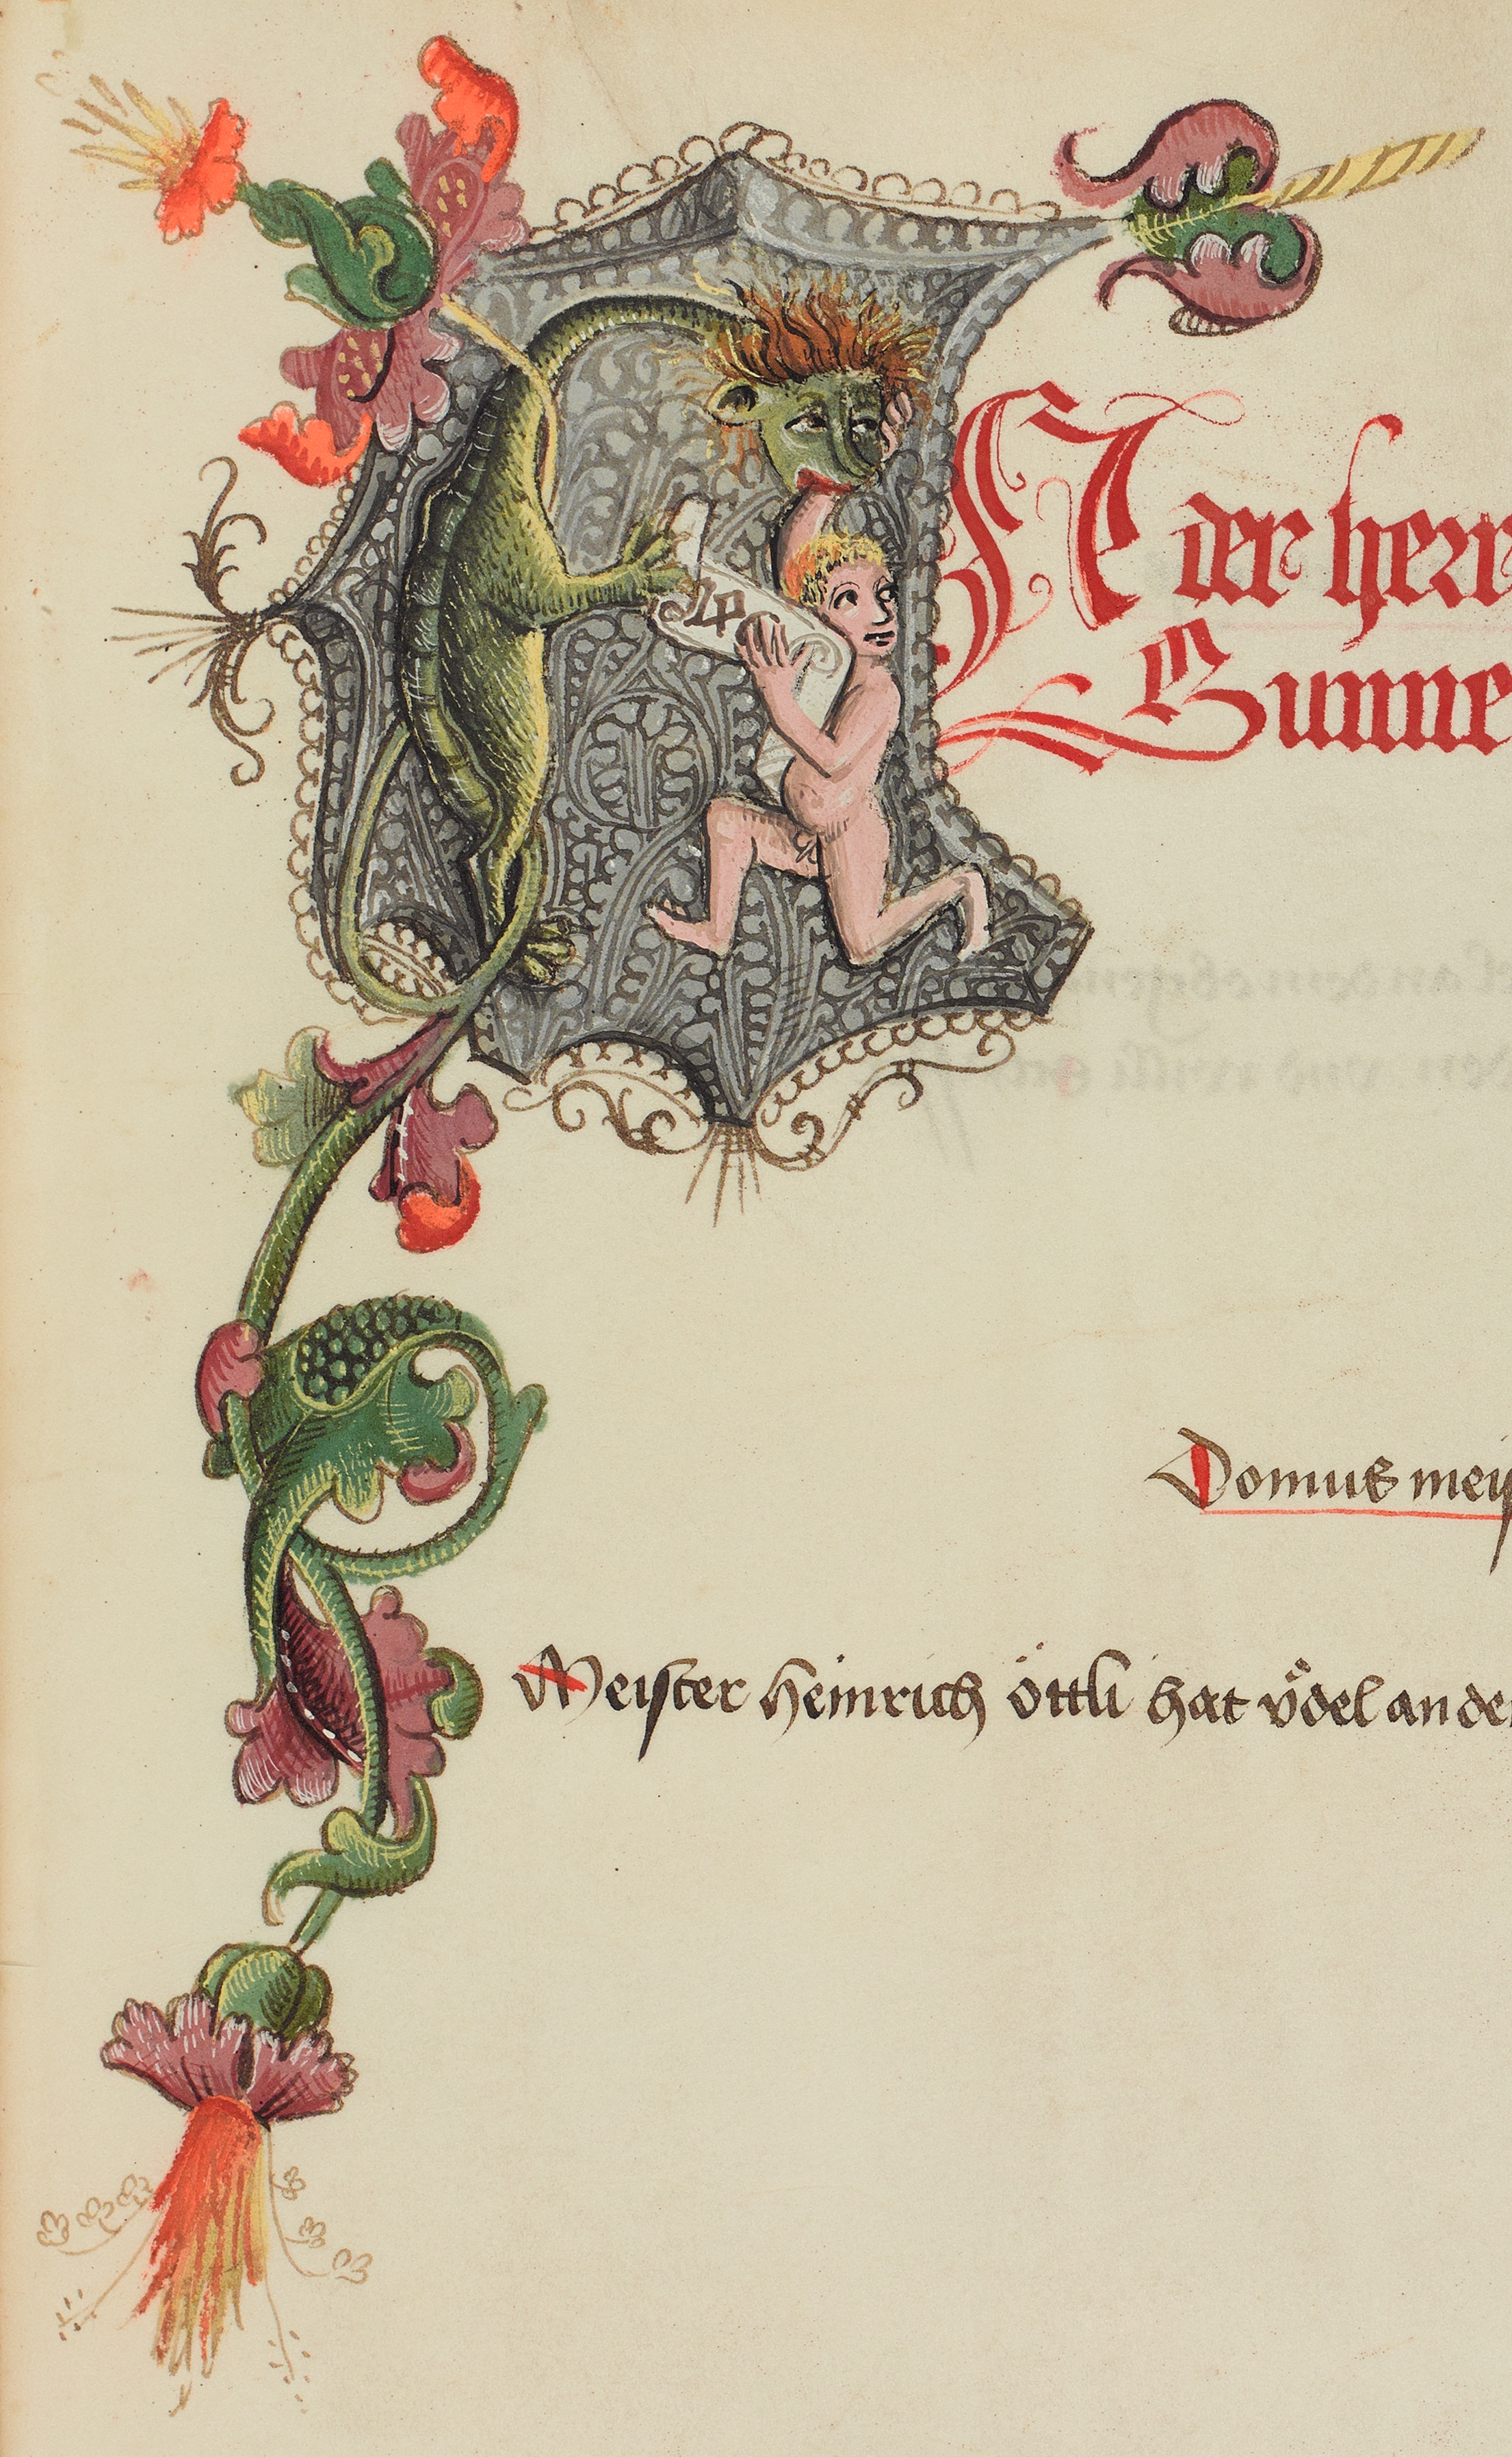 AN der herr
Sunne
Domus meis
Meister heinrich öttli hat v̊del an der